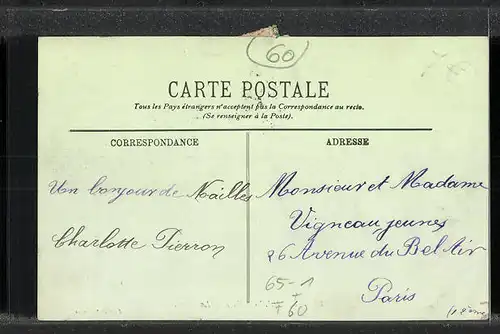 60
CARTE POSTALE
Tous les Pays étrangers n'acceptent pas la Correspondance au recto.
(Se renseigner à la Poste).
CORRESPONDANCE
ADRESSE
Un bonjour de Noailles
Charlotte Pierron
Monsieur et Madame
Vigneau jeunes
26 Avenue du Bel Air
Paris
65-1
60